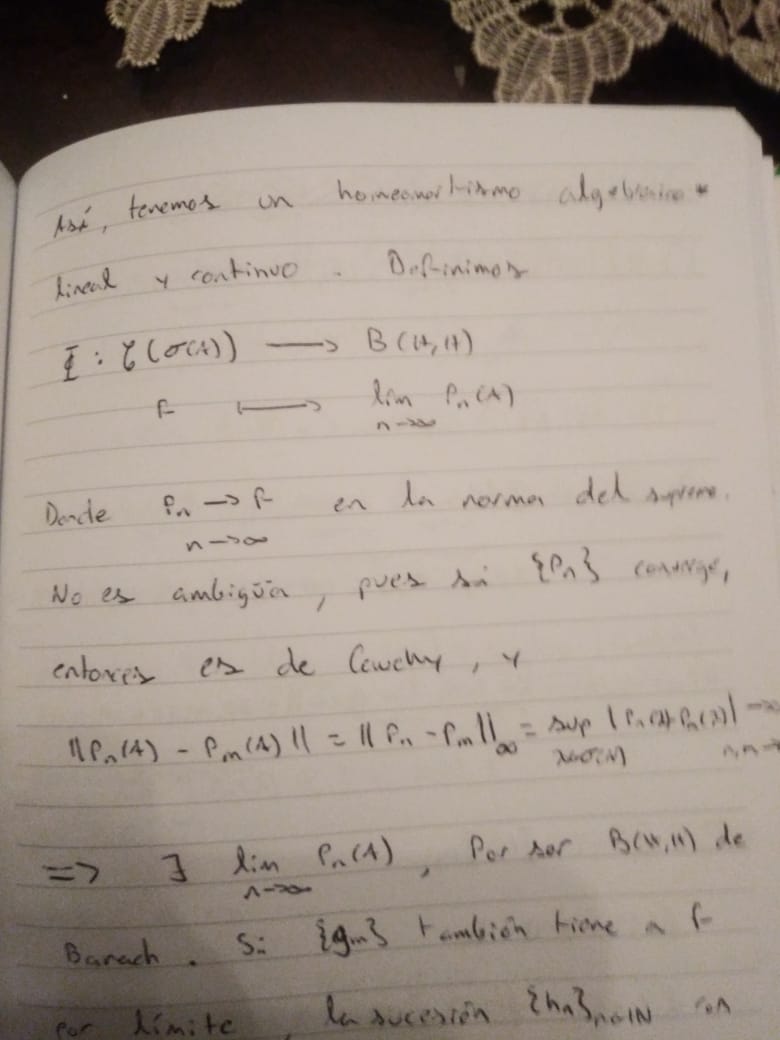 Así, tenemos un homeomorfismo algebraico *
lineal y continuo. Definimos
Φ : C(σ(A)) ⟶ B(H,H)
f ⟼ lim Pn(A)
n→∞
Donde Pn → f en la norma del supremo.
n→∞
No es ambigüa, pues si {Pn} converge,
entonces es de Cauchy, y
||Pn(A) - Pm(A)|| = ||Pn - Pm||∞ = sup |Pn(λ)-Pm(λ)| →
λ∈σ(A) n,m→
=> ∃ lim Pn(A), Por ser B(H,H) de
n→∞
Banach. Si {gm} también tiene a f
por límite, la sucesión {hn}n∈IN con